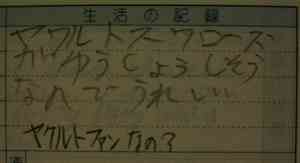 生活の記録
ヤクルトスワローズ
がゆうしょうしそう
なんでうれしい
ヤクルトファンなの?